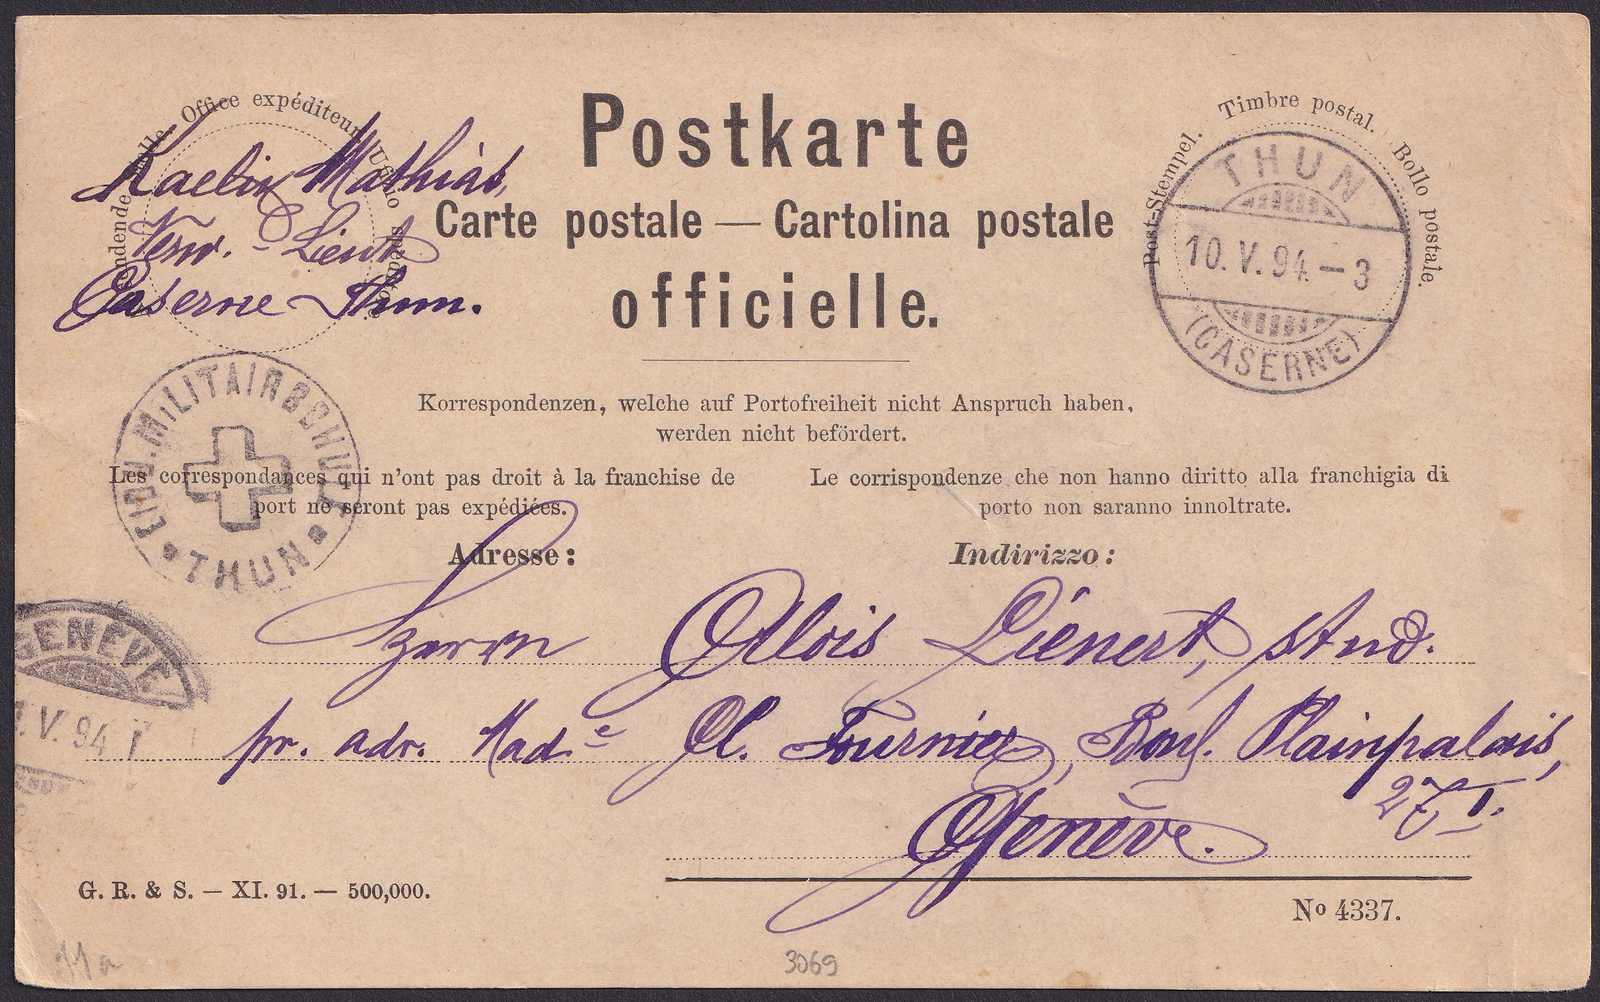 Postkarte
Carte postale — Cartolina postale
officielle.
Office expéditeur. Ufficio speditore.
Kaelin Mathias,
Verw. - Lieut
Caserne Thun.
Post-Stempel. Timbre postal. Bollo postale.
THUN
10. V. 94. – 3
(CASERNE)
Korrespondenzen, welche auf Portofreiheit nicht Anspruch haben,
werden nicht befördert.
EIDG. MILITAIRSCHULE
THUN
Les correspondances qui n'ont pas droit à la franchise de
port ne seront pas expédiées.
Le corrispondenze che non hanno diritto alla franchigia di
porto non saranno innoltrate.
Adresse: Indirizzo:
Herrn Alois Liénert, stud.
pr. adr. Made Cl. Fournier, Boul. Plainpalais,
27, I.
Genève.
GENÈVE
V. 94
G. R. & S. — XI. 91. — 500,000.
No 4337.
11a
3069